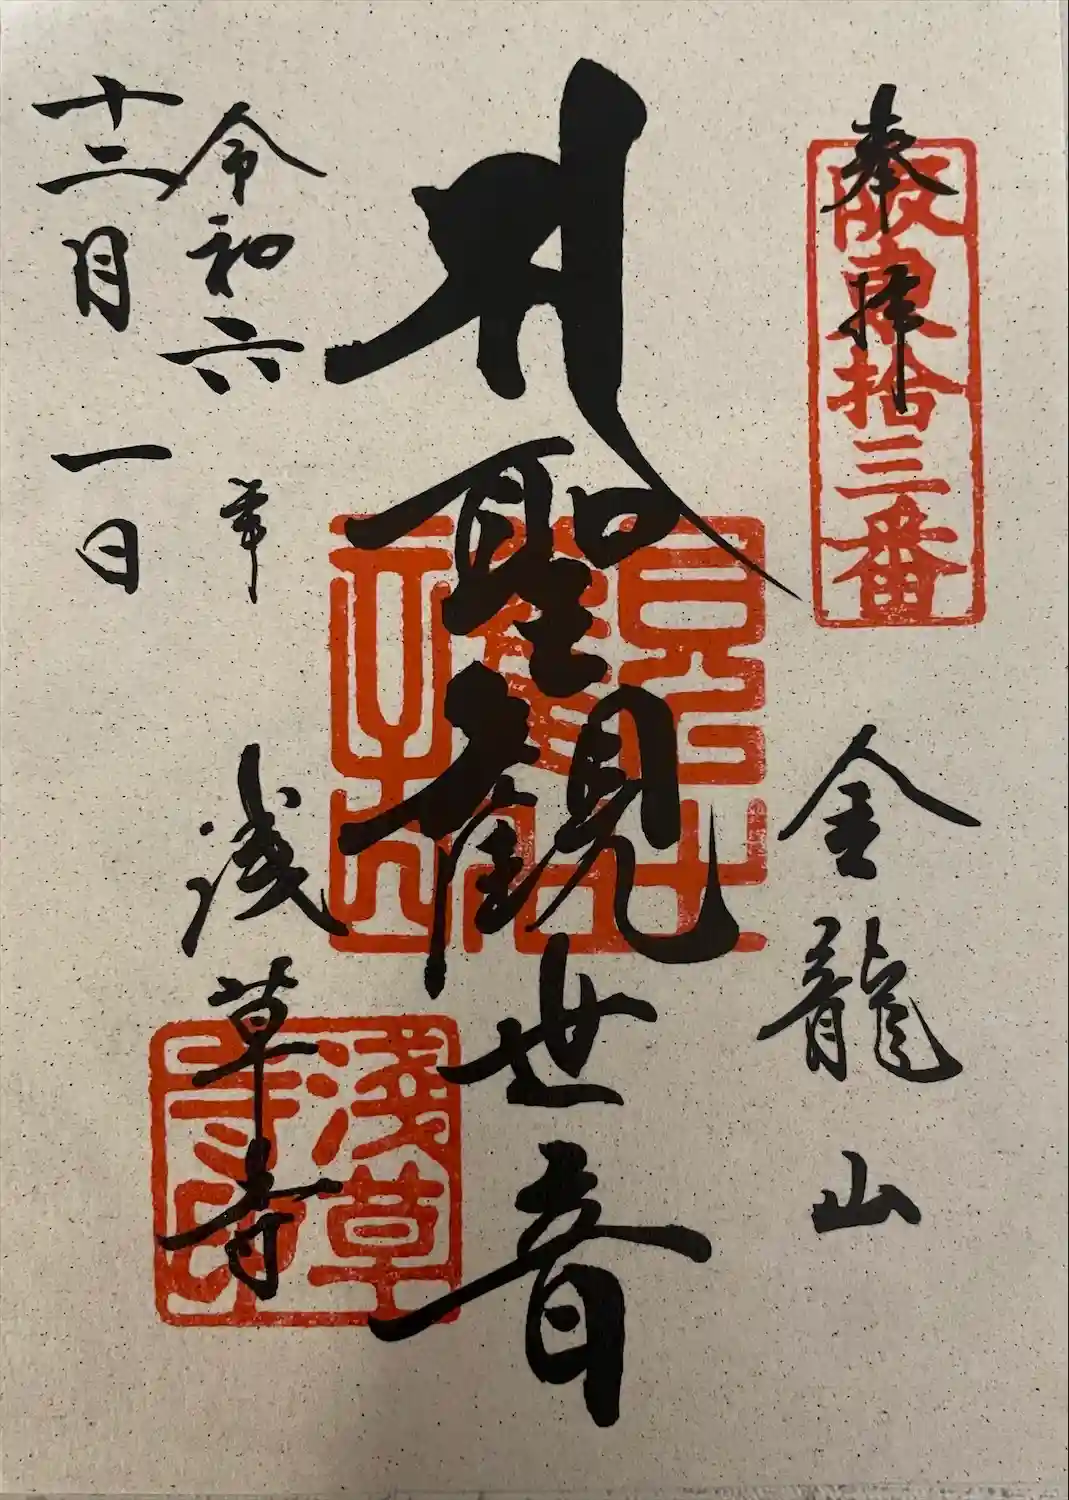 奉拝
坂東拾三番
金龍山
聖観世音
浅草寺
浅草寺印
令和六年
十二月一日